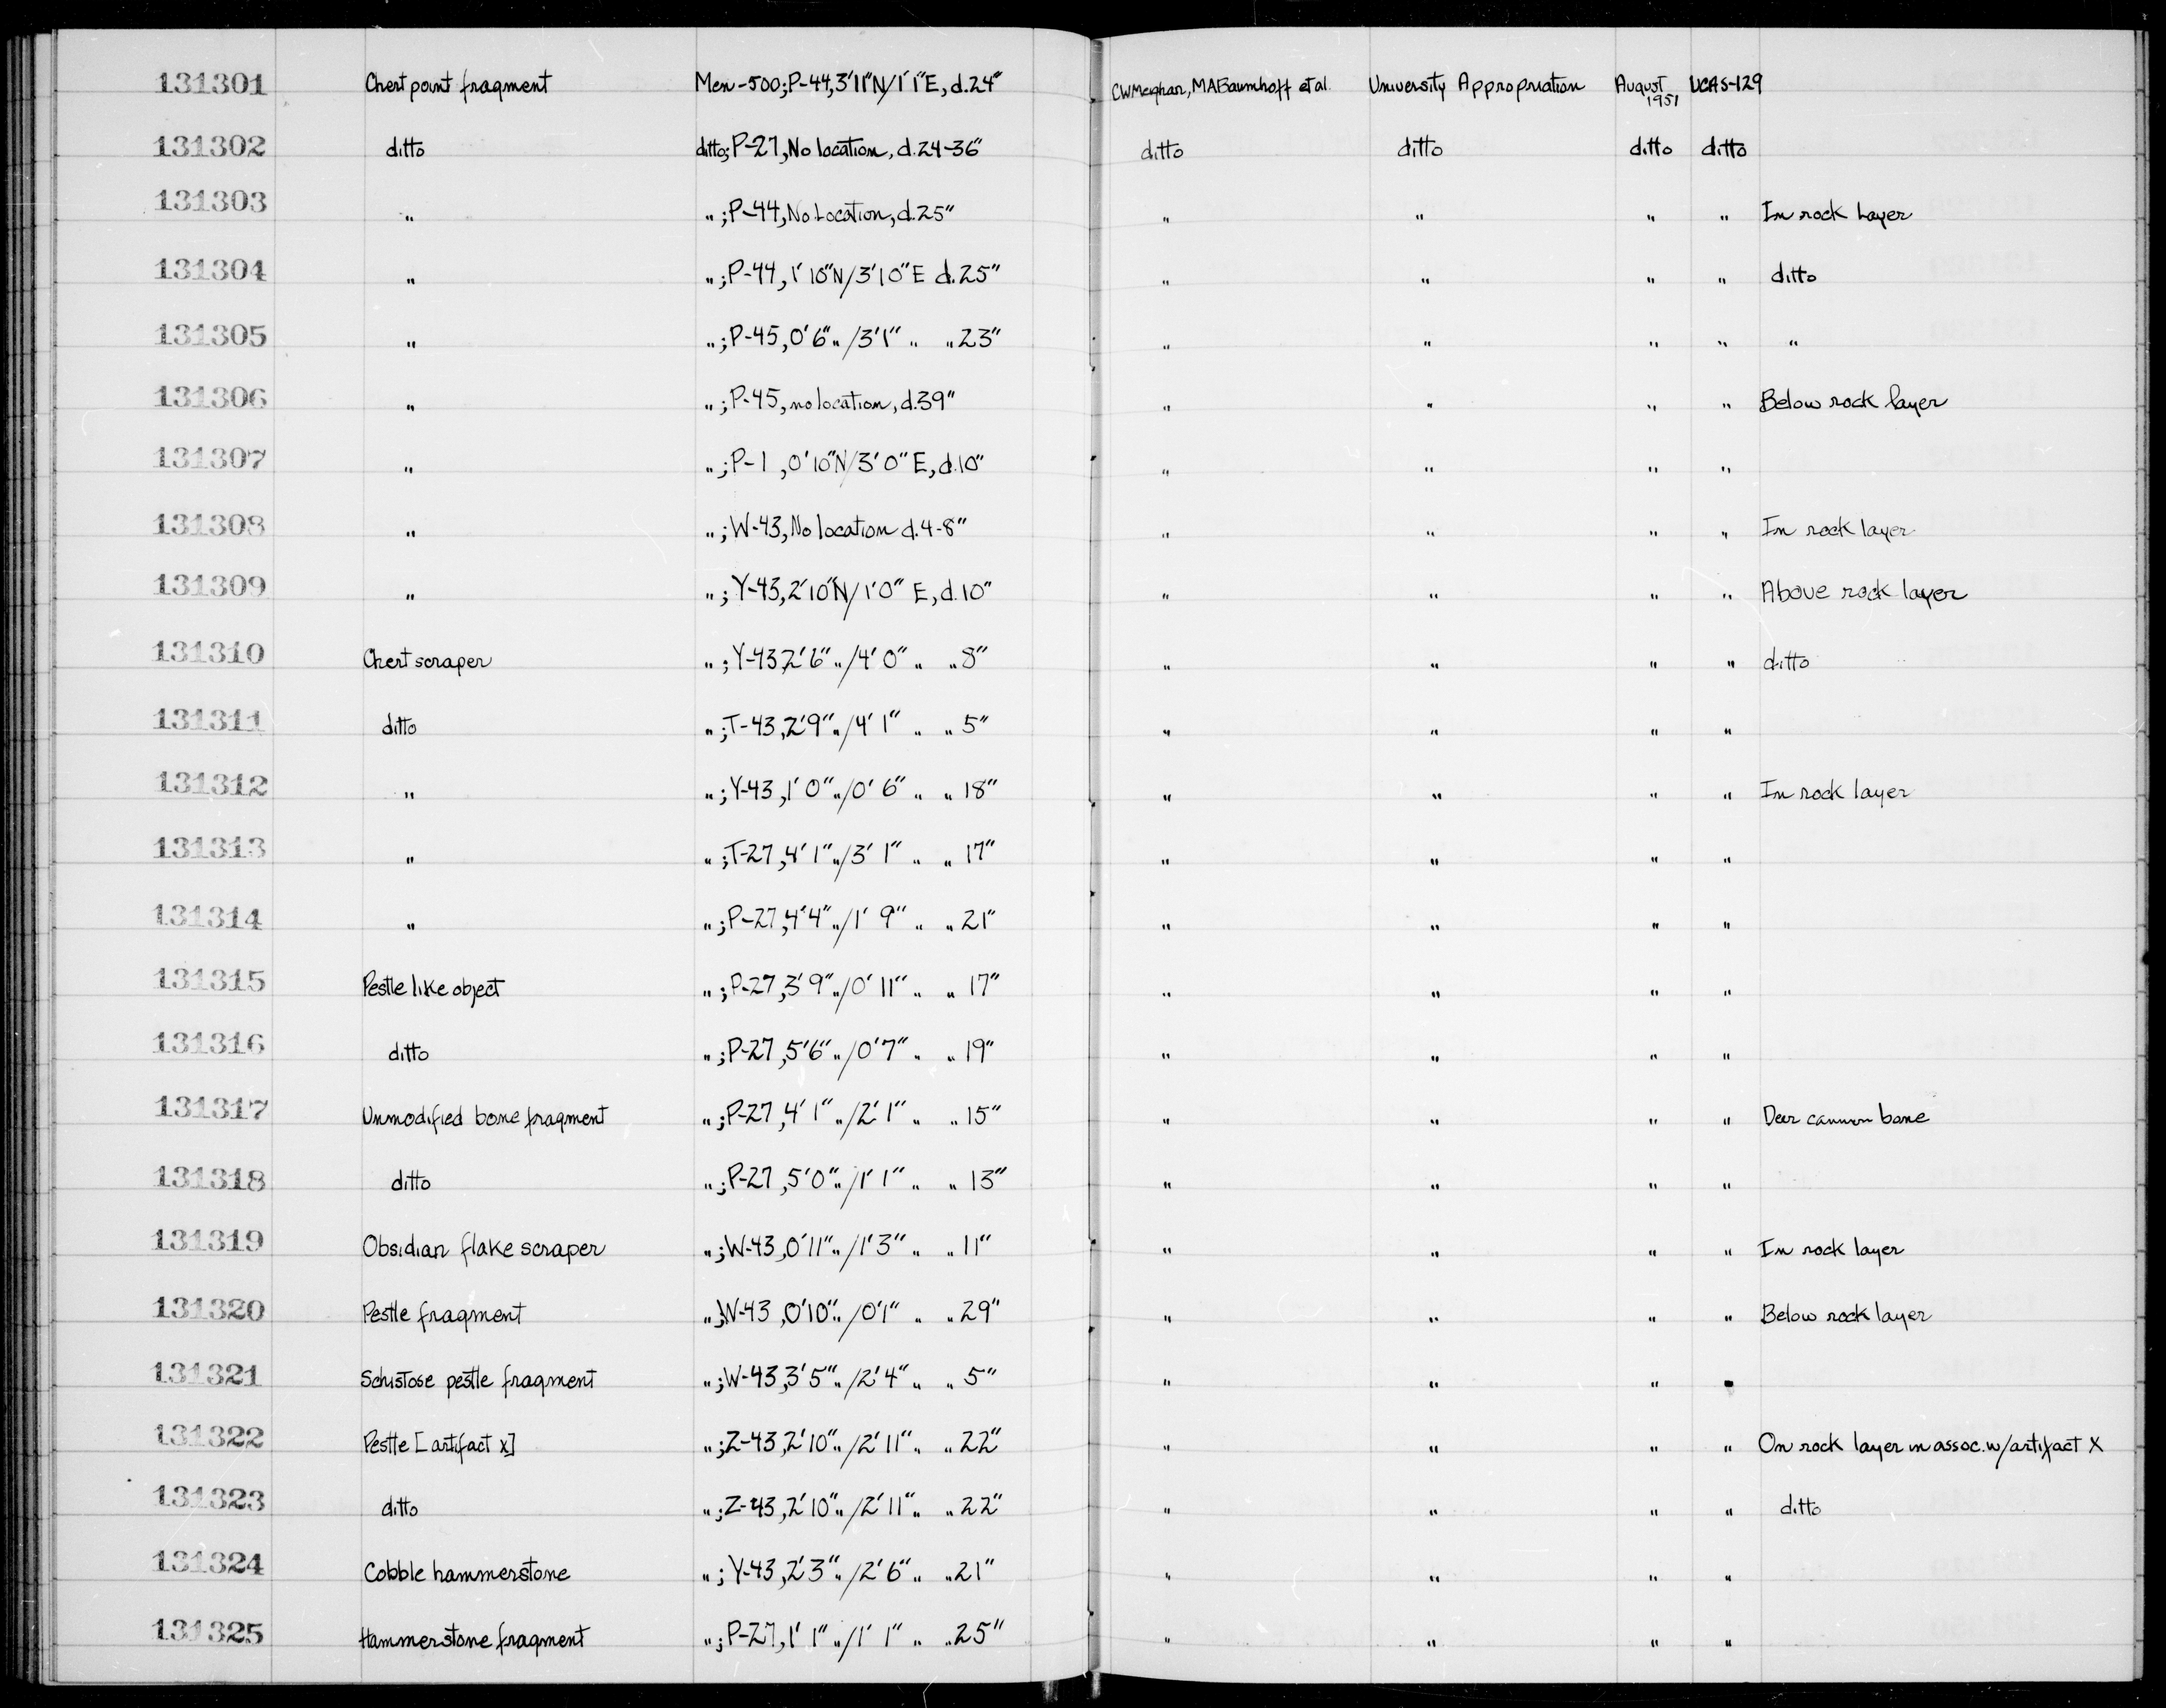 131301 Chert point fragment Men-500; P-44, 3'11"N/1'1"E, d.24" CWMeighan, MABaumhoff et al. University Appropriation August 1951 UCAS-129
131302 ditto ditto; P-27, No location, d.24-36" ditto ditto ditto ditto
131303 " "; P-44, No Location, d.25" " " " " In rock Layer
131304 " "; P-44, 1'10"N/3'10"E d.25" " " " " ditto
131305 " "; P-45, 0'6" "/3'1" " " 23" " " " " "
131306 " "; P-45, no location, d.39" " " " " Below rock layer
131307 " "; P-1, 0'10"N/3'0"E, d.10" " " " "
131308 " "; W-43, No location d.4-8" " " " " In rock layer
131309 " "; Y-43, 2'10"N/1'0" E, d.10" " " " " Above rock layer
131310 Chert scraper "; Y-43, 2'6" "/4'0" " " 8" " " " " ditto
131311 ditto "; T-43, 2'9" "/4'1" " " 5" " " " "
131312 " "; Y-43, 1'0" "/0'6" " " 18" " " " " In rock layer
131313 " "; T-27, 4'1" "/3'1" " " 17" " " " "
131314 " "; P-27, 4'4" "/1'9" " " 21" " " " "
131315 Pestle like object "; P-27, 3'9" "/0'11" " " 17" " " " "
131316 ditto "; P-27, 5'6" "/0'7" " " 19" " " " "
131317 Unmodified bone fragment "; P-27, 4'1" "/2'1" " " 15" " " " " Deer cannon bone
131318 ditto "; P-27, 5'0" "/1'1" " " 13" " " " "
131319 Obsidian flake scraper "; W-43, 0'11" "/1'3" " " 11" " " " " In rock layer
131320 Pestle fragment "; W-43, 0'10" "/0'1" " " 29" " " " " Below rock layer
131321 Schistose pestle fragment "; W-43, 3'5" "/2'4" " " 5" " " " "
131322 Pestle [artifact X] "; Z-43, 2'10" "/2'11" " " 22" " " " " On rock layer in assoc. w/artifact X
131323 ditto "; Z-43, 2'10" "/2'11" " " 22" " " " " ditto
131324 Cobble hammerstone "; Y-43, 2'3" "/2'6" " " 21" " " " "
131325 Hammerstone fragment "; P-27, 1'1" "/1'1" " " 25" " " " "